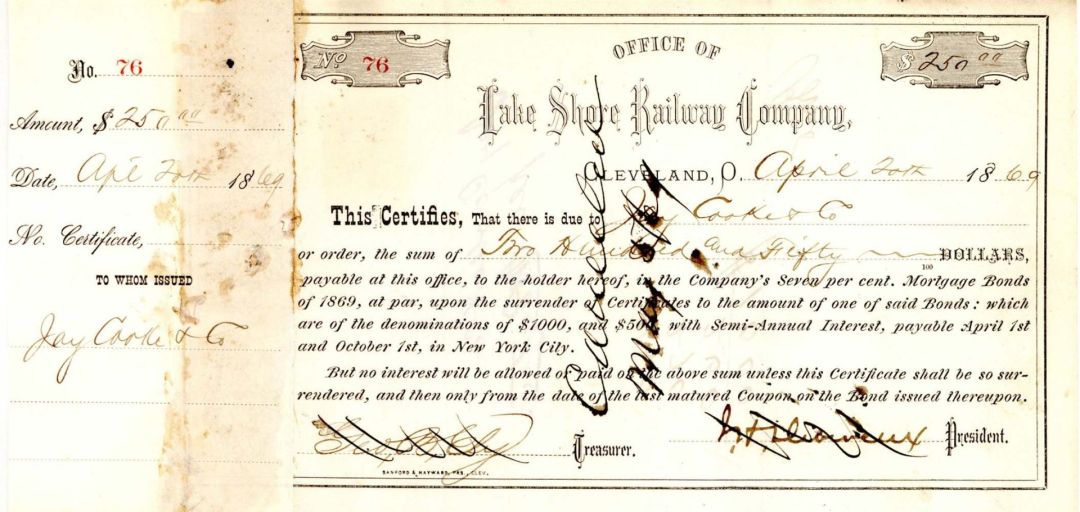 No. 76
Amount, $250 00
Date, Apl 20th 1869
No. Certificate,
TO WHOM ISSUED
Jay Cooke & Co
No 76
$250 00
OFFICE OF
Lake Shore Railway Company,
CLEVELAND, O. April 20th 1869
This Certifies, That there is due to Jay Cooke & Co
or order, the sum of Two Hundred and Fifty 100 DOLLARS,
payable at this office, to the holder hereof, in the Company's Seven per cent. Mortgage Bonds
of 1869, at par, upon the surrender of Certificates to the amount of one of said Bonds: which
are of the denominations of $1000, and $500, with Semi-Annual Interest, payable April 1st
and October 1st, in New York City.
But no interest will be allowed or paid on the above sum unless this Certificate shall be so sur-
rendered, and then only from the date of the last matured Coupon on the Bond issued thereupon.
Treasurer.
President.
SANFORD & HAYWARD, PRS., CLEV.
Cancelled
May